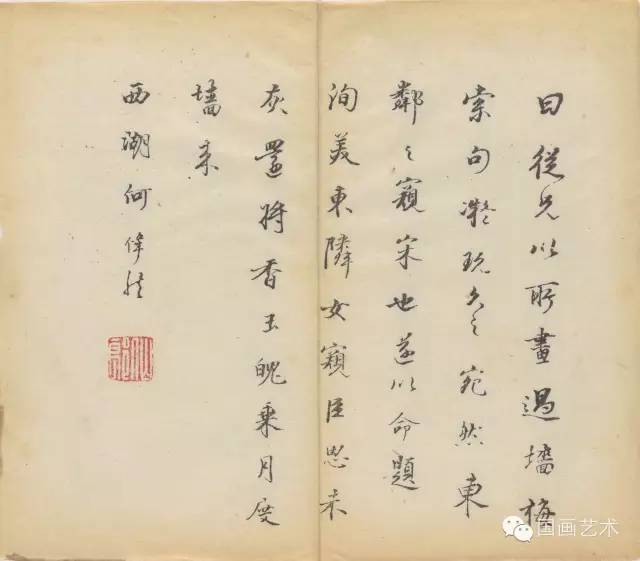 曰從兄以所畫過墻梅
索句凝玩久之宛然東
鄰之窺宋也遂以命題
洵美東隣女窺臣思未
灰還將香玉魄乘月度
墻来
西湖何偉然
国画艺术